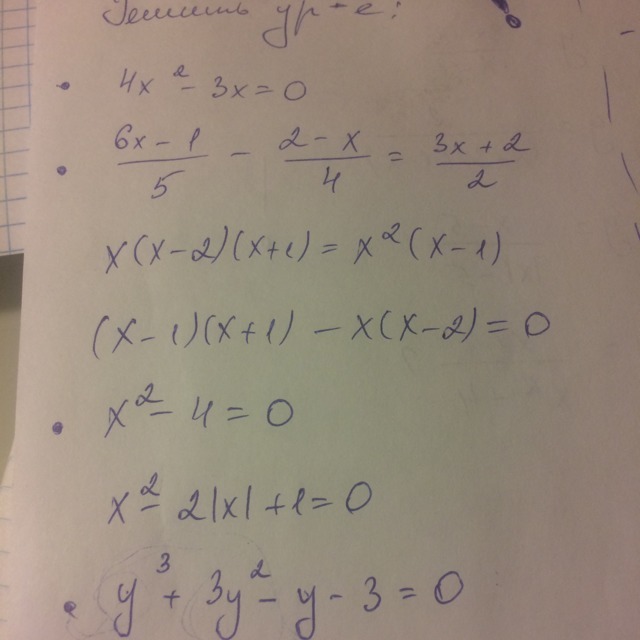 Решить ур-е:
• 4x² - 3x = 0
• (6x - 1)/5 - (2 - x)/4 = (3x + 2)/2
x(x - 2)(x + 1) = x²(x - 1)
(x - 1)(x + 1) - x(x - 2) = 0
• x² - 4 = 0
x² - 2|x| + 1 = 0
• y³ + 3y² - y - 3 = 0